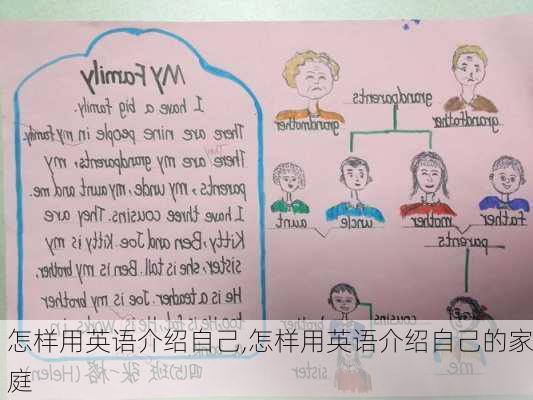 My Family
I have a big family.
There are nine people in my family.
They
There are my grandparents, my
parents, my uncle, my aunt and me.
I have three cousins. They are
Kitty, Ben and Joe. Kitty is my
sister, she is tall. Ben is my brother.
He is a teacher. Joe is my brother
too. He is fat. He is
(Helen)
grandfather
grandparents
grandmother
father
mother
uncle
aunt
parents
cousins
brother
me
sister
怎样用英语介绍自己,怎样用英语介绍自己的家
庭